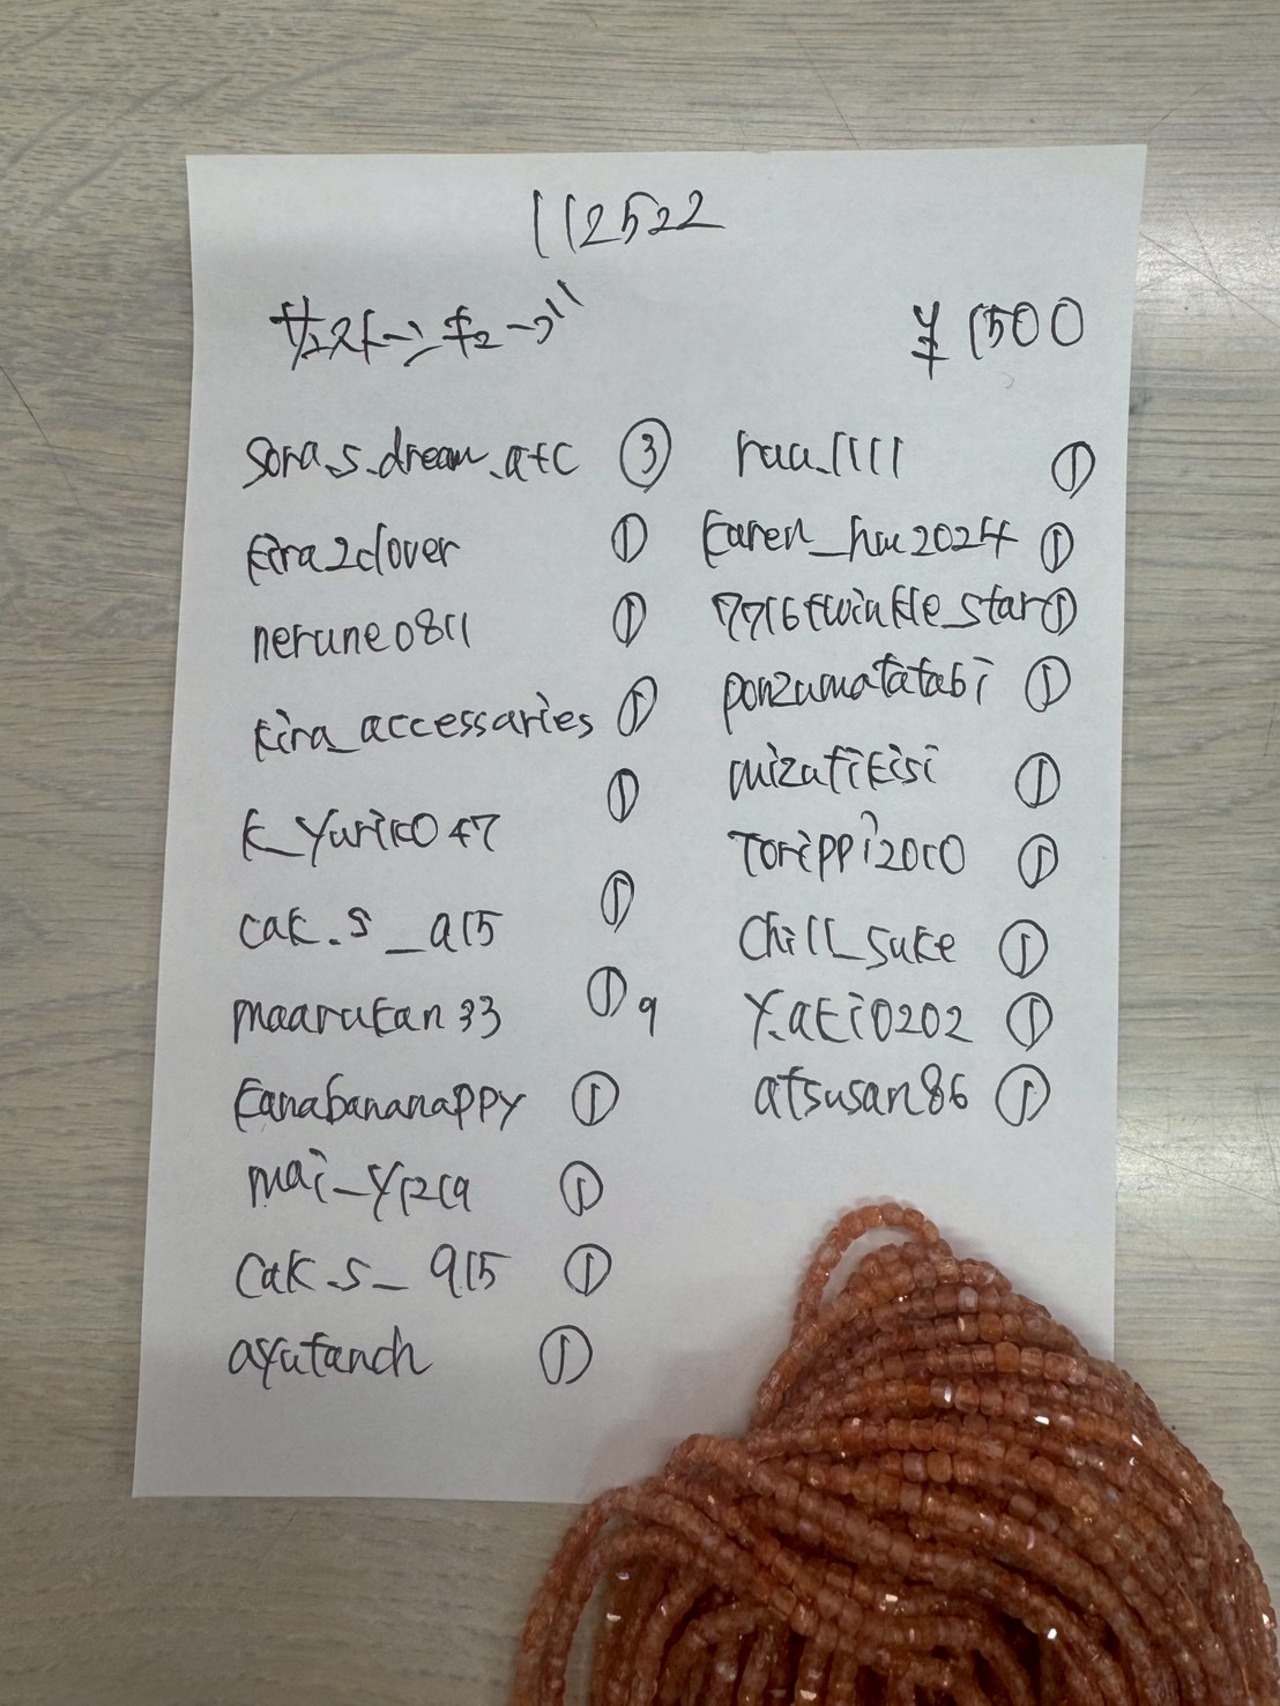 112522
サンストーンキューブ
¥1500
sora_s_dream_atc ③
kira2clover ①
nerune0811 ①
kira_accessaries ①
k_yuriko47 ①
cak.s_a15 ①
maarukan33 ① 9
kanabananappy ①
mai_y1219 ①
cak.s_915 ①
ayutanch ①
raa_1111 ①
karen_hm2024 ①
7716twinkle_star ①
ponzumatatabi ①
mizutikisi ①
Torippi2010 ①
chill_suke ①
y.aki0202 ①
atsusan86 ①